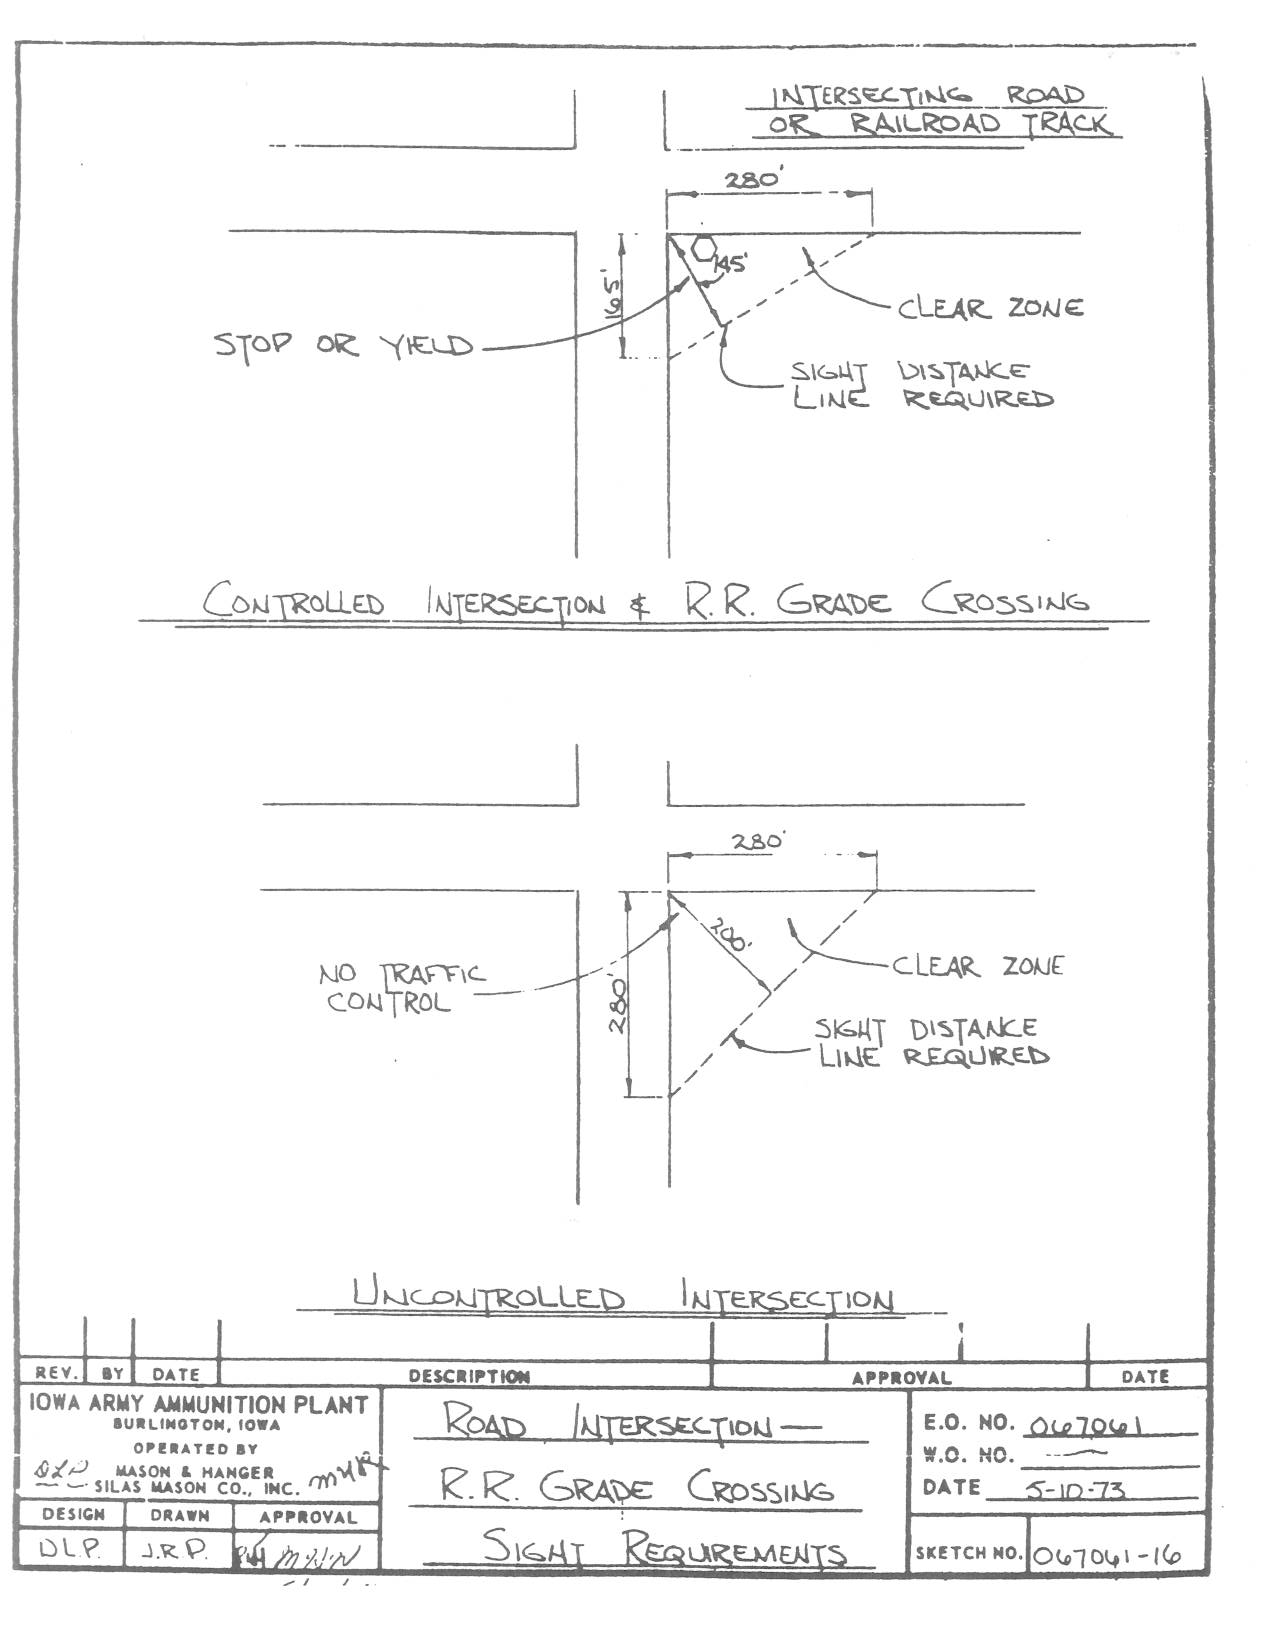 INTERSECTING ROAD
OR RAILROAD TRACK
280'
165'
145'
CLEAR ZONE
STOP OR YIELD
SIGHT DISTANCE
LINE REQUIRED
CONTROLLED INTERSECTION & R.R. GRADE CROSSING
280'
200'
280'
NO TRAFFIC
CONTROL
CLEAR ZONE
SIGHT DISTANCE
LINE REQUIRED
UNCONTROLLED INTERSECTION
REV. BY DATE DESCRIPTION APPROVAL DATE
IOWA ARMY AMMUNITION PLANT
BURLINGTON, IOWA
OPERATED BY
MASON & HANGER
SILAS MASON CO., INC.
DLP
DESIGN DRAWN APPROVAL
DLP. J.R.P.
ROAD INTERSECTION—
R.R. GRADE CROSSING
SIGHT REQUIREMENTS
E.O. NO. 067061
W.O. NO. —
DATE 5-10-73
SKETCH NO. 067061-16